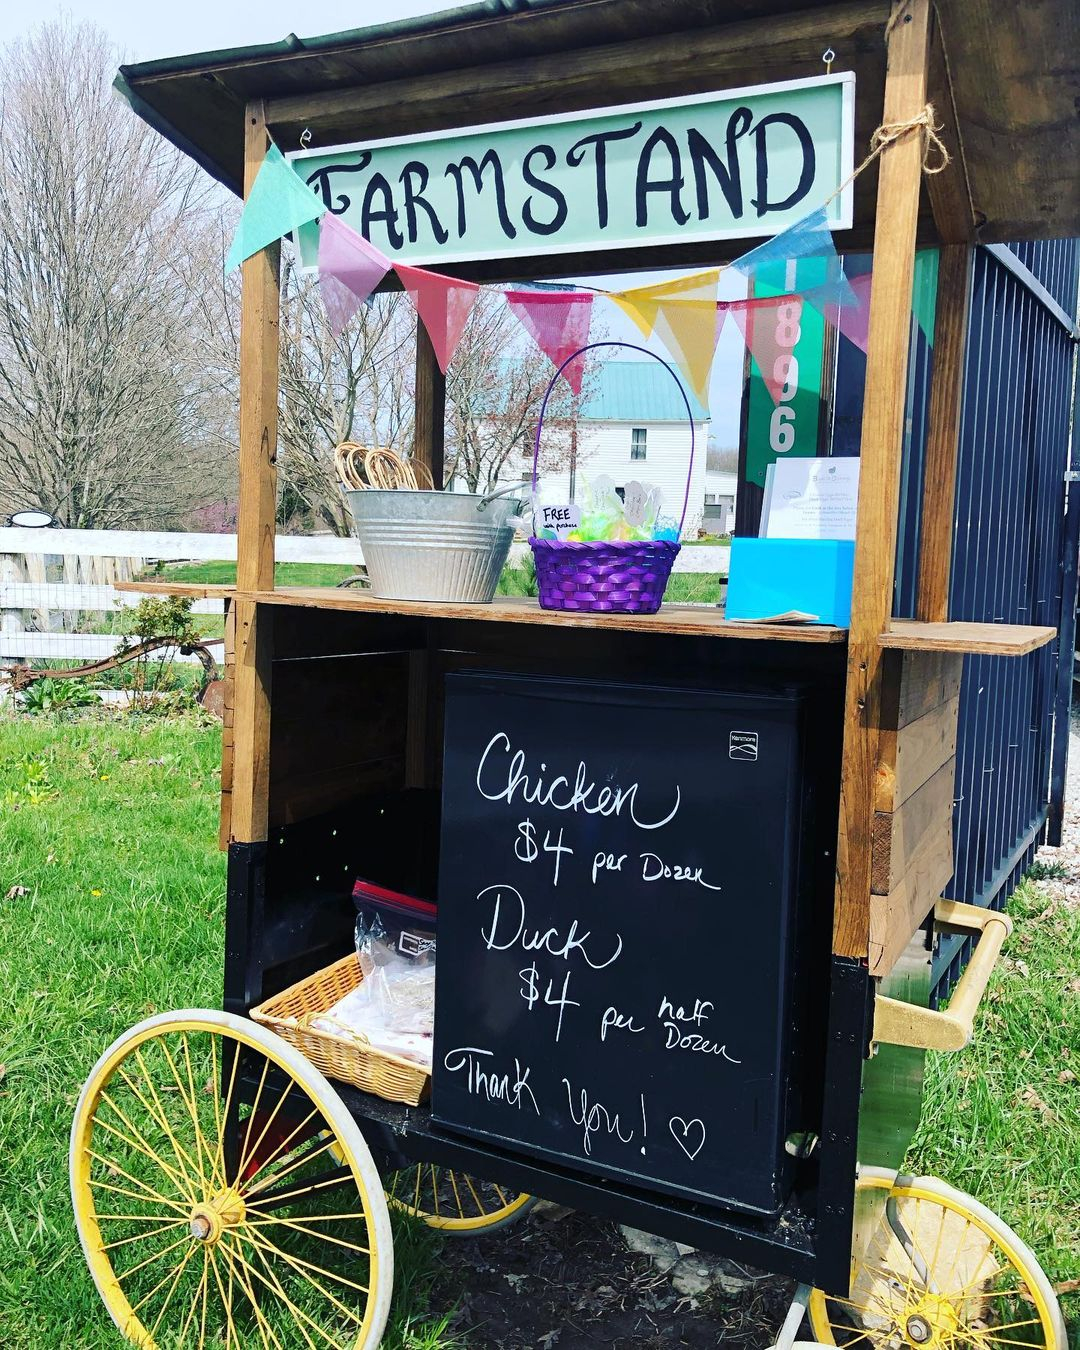 FARMSTAND
1896
FREE
with purchase
Kenmore
Chicken
$4 per Dozen
Duck
$4 per half
Dozen
Thank You! ♡